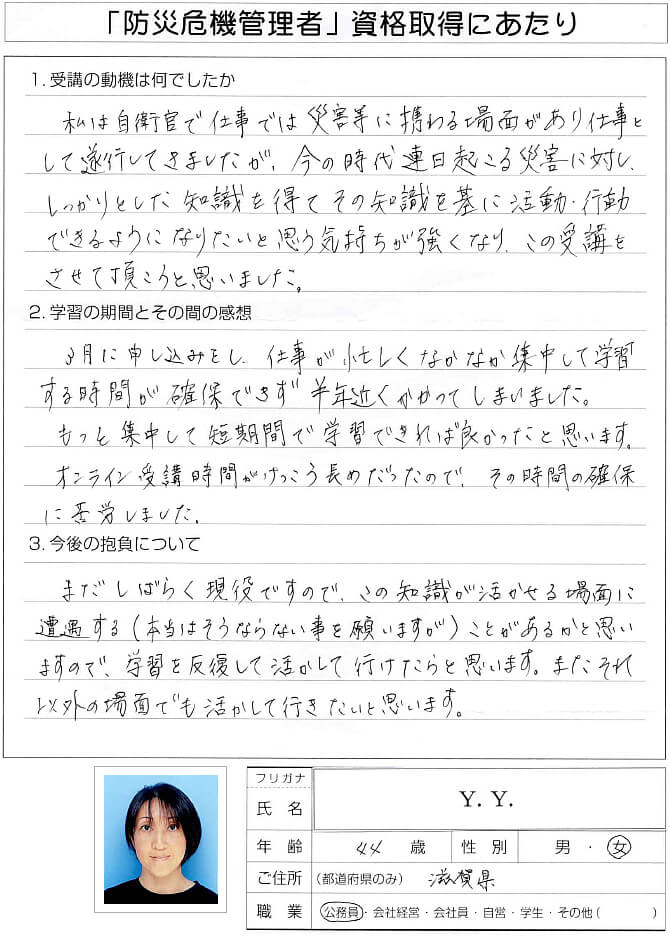 「防災危機管理者」資格取得にあたり
1. 受講の動機は何でしたか
私は自衛官で仕事では災害等に携わる場面があり仕事と
して遂行してきましたが、今の時代連日起こる災害に対し、
しっかりとした知識を得てその知識を基に活動・行動
できるようになりたいと思う気持ちが強くなり、この受講を
させて頂こうと思いました。
2. 学習の期間とその間の感想
3月に申し込みをし、仕事が忙しくなかなか集中して学習
する時間が確保できず半年近くかかってしまいました。
もっと集中して短期間で学習できれば良かったと思います。
オンライン受講時間がけっこう長めだったので、その時間の確保
に苦労しました。
3. 今後の抱負について
まだしばらく現役ですので、この知識が活かせる場面に
遭遇する(本当はそうならない事を願いますが)ことがあるかと思い
ますので、学習を反復して活かして行けたらと思います。またそれ
以外の場面でも活かして行きたいと思います。
フリガナ
氏名 Y. Y.
年齢 44 歳 性別 男・女
ご住所 (都道府県のみ) 滋賀県
職業 公務員・会社経営・会社員・自営・学生・その他( )